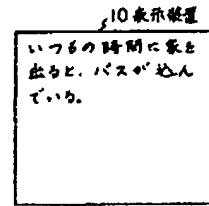 10表示装置
いつもの時間に家を
出ると、バスが込ん
でいる。